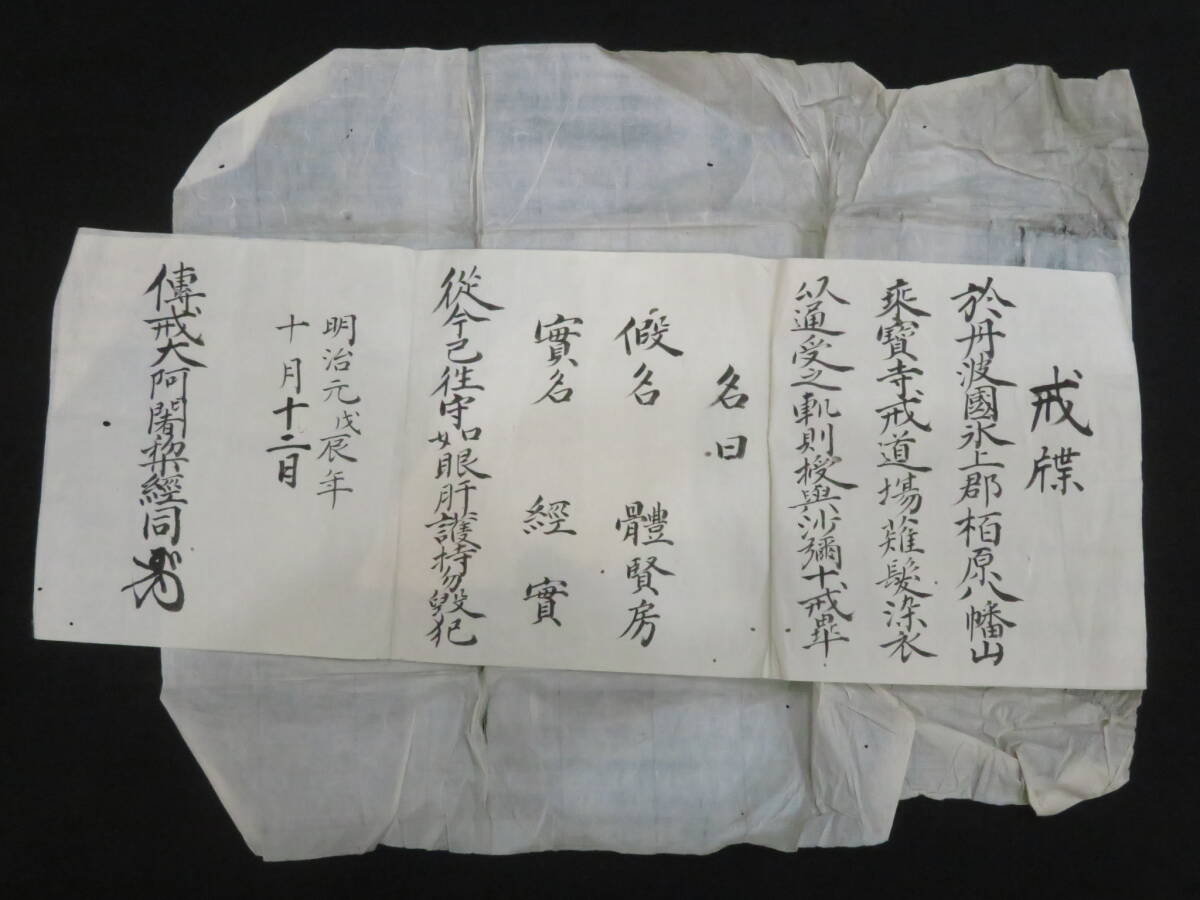 戒牒
於丹波國氷上郡栢原八幡山
乘寶寺戒道場薙髮染衣
以通受之軌則授與沙彌十戒畢
名曰
假名 體賢房
實名 經實
從今已往守如眼肝護持勿毀犯
明治元戊辰年
十月十二日
傳戒大阿闍梨經同